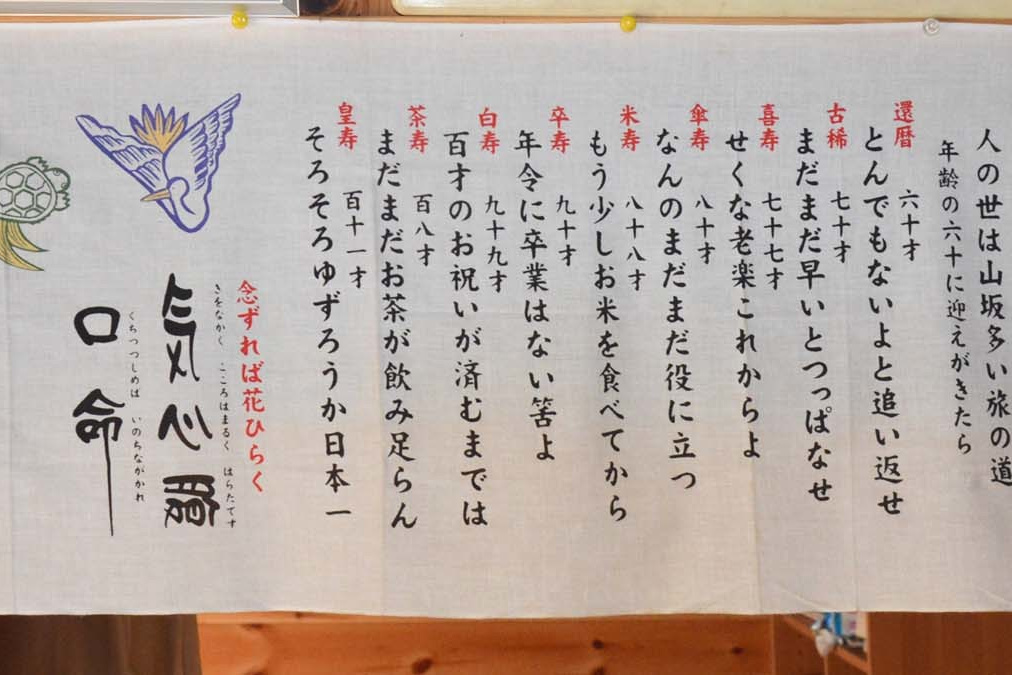 人の世は山坂多い旅の道
年齢の六十に迎えがきたら
還暦 六十才
とんでもないよと追い返せ
古稀 七十才
まだまだ早いとつっぱなせ
喜寿 七十七才
せくな老楽これからよ
傘寿 八十才
なんのまだまだ役に立つ
米寿 八十八才
もう少しお米を食べてから
卒寿 九十才
年令に卒業はない筈よ
白寿 九十九才
百才のお祝いが済むまでは
茶寿 百八才
まだまだお茶が飲み足らん
皇寿 百十一才
そろそろゆずろうか日本一
念ずれば花ひらく
きをなかく こころはまるく はらたてす
気心腹
くちつつしめは いのちながかれ
口命